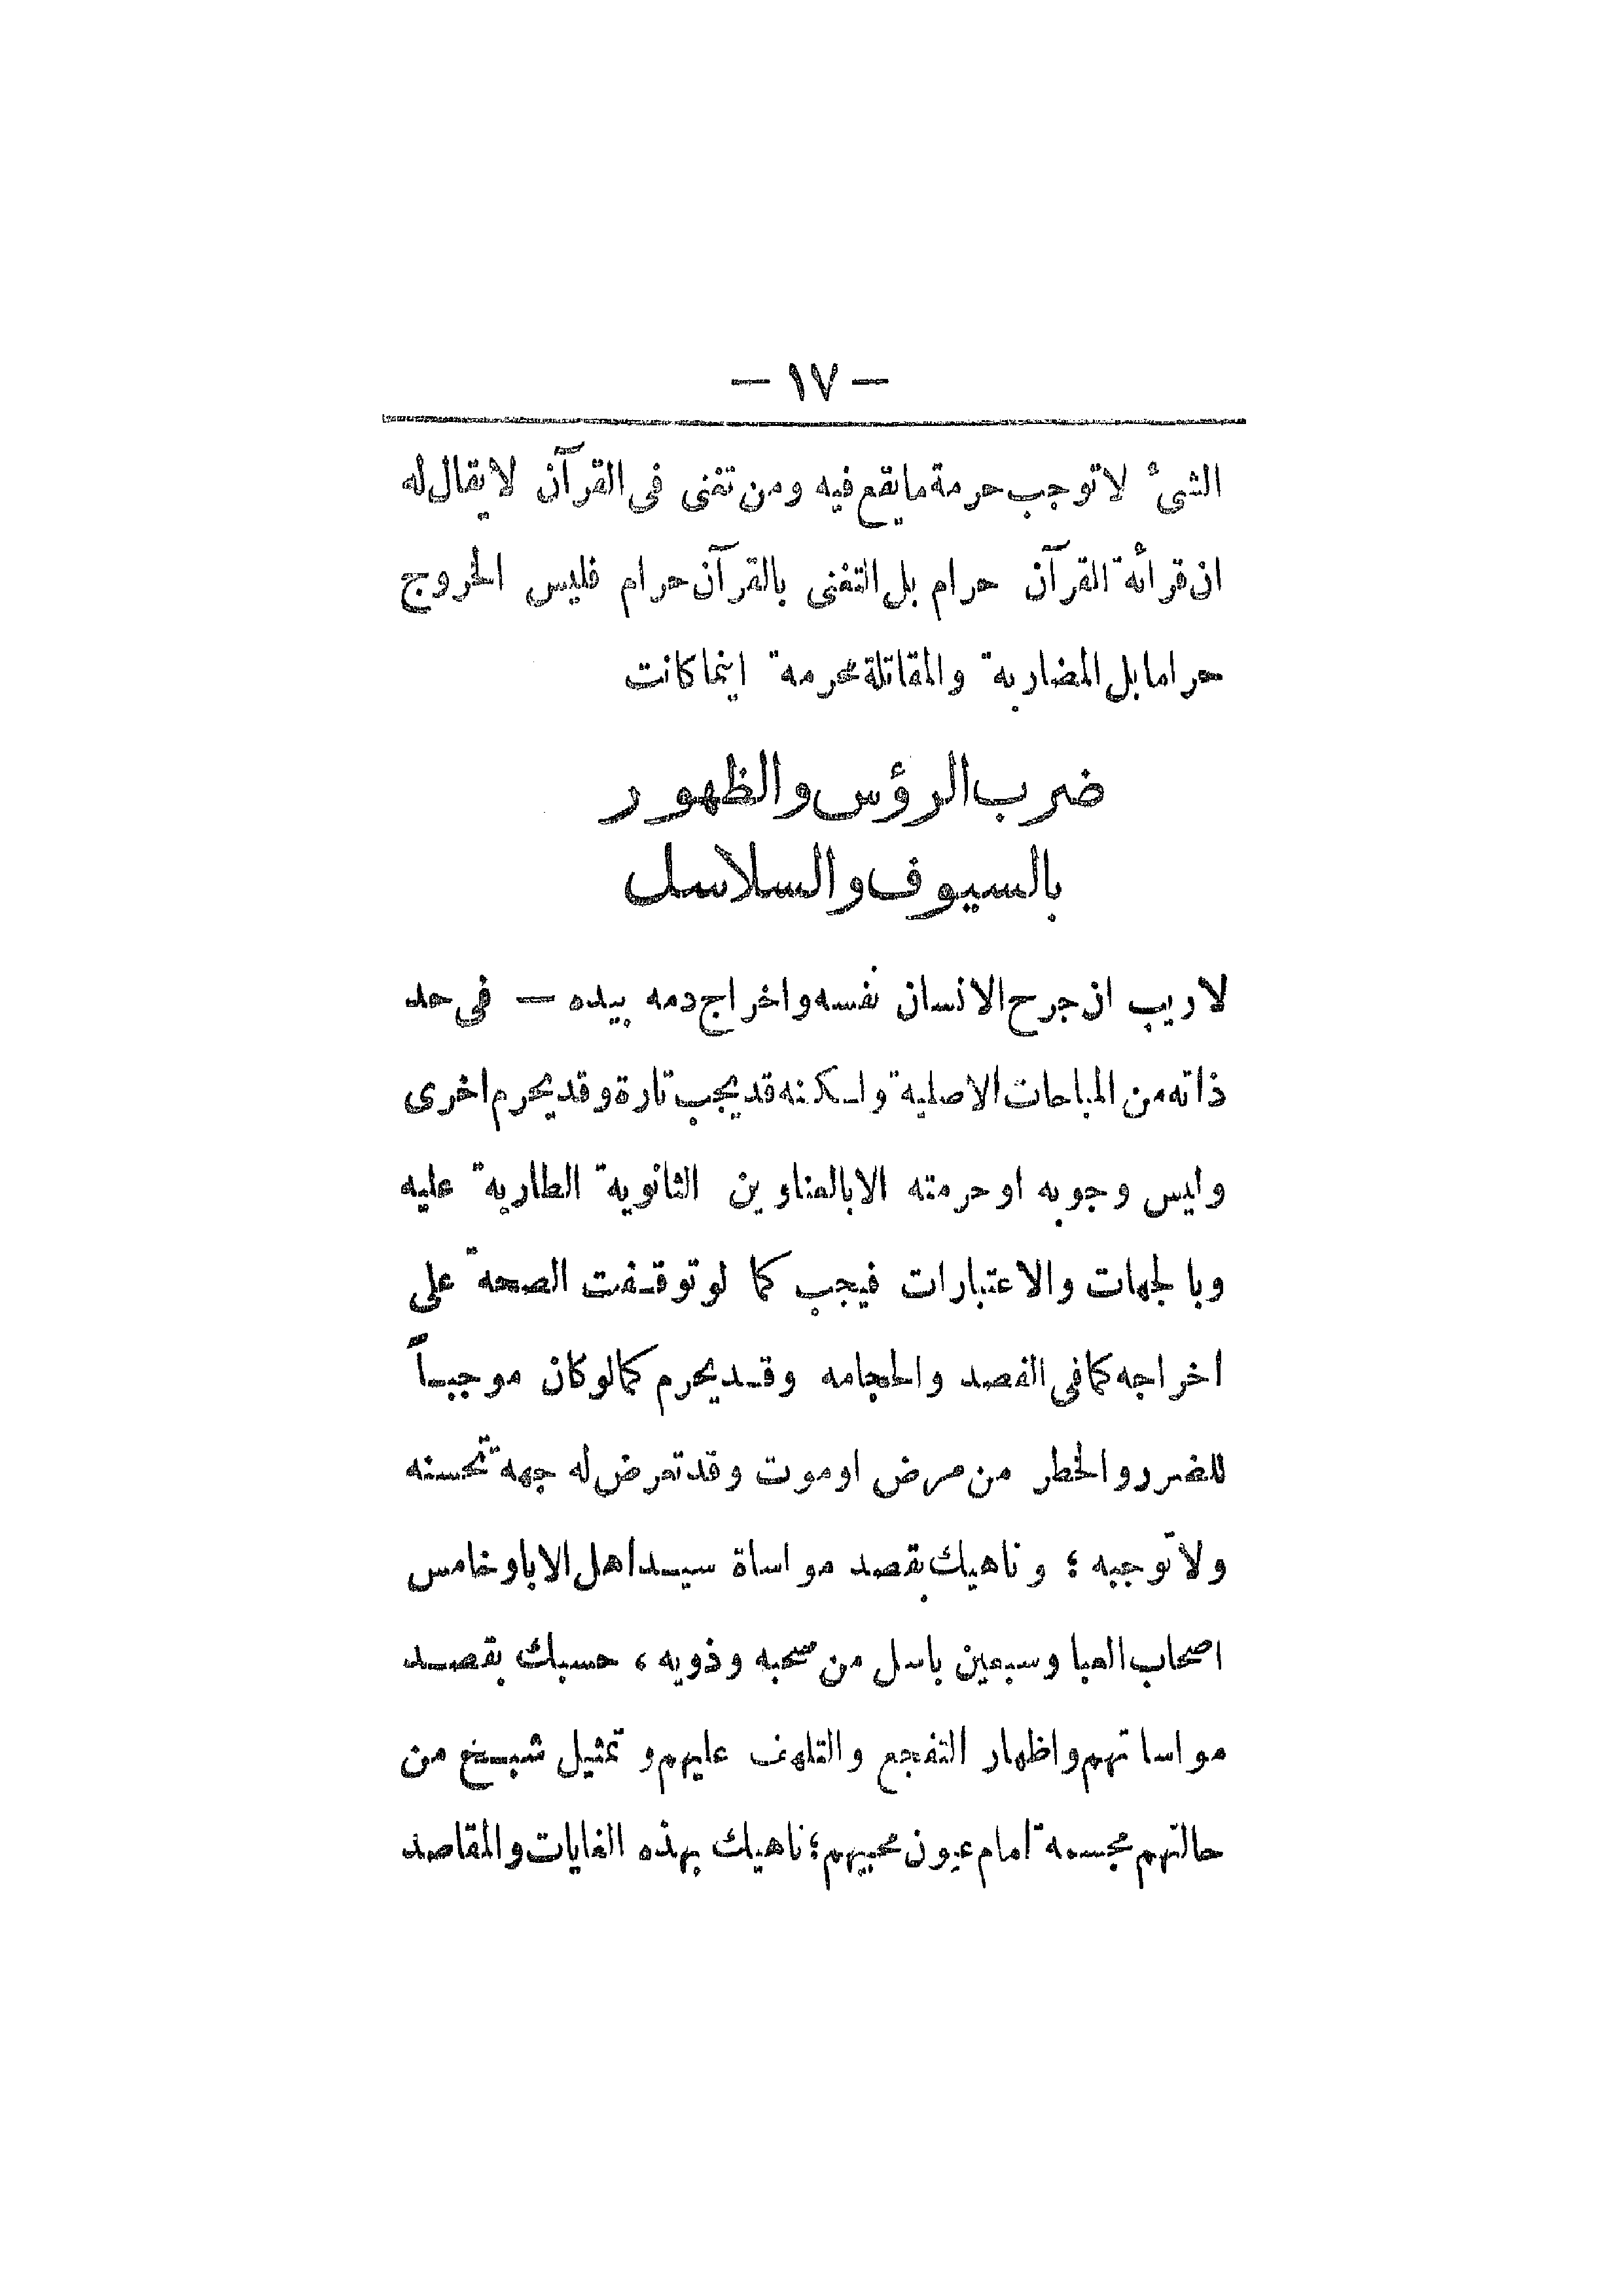 — ١٧ —
الشئ لا توجب حرمة ما يقع فيه ومن تغنى فى القرآن لا يقال له
ان قرائة القرآن حرام بل التغنى بالقرآن حرام فليس الخروج
حراما بل المضاربة والمقاتلة محرمة اينما كانت
ضرب الرؤس والظهور
بالسيوف والسلاسل
لا ريب ان جرح الانسان نفسه واخراج دمه بيده — فى حد
ذاته من المباحات الاصلية ولكنه قد يجب تارة وقد يحرم اخرى
وليس وجوبه او حرمته الا بالعناوين الثانوية الطارية عليه
وبالجهات والاعتبارات فيجب كما لو توقفت الصحة على
اخراجه كما فى الفصد والحجامه وقد يحرم كما لو كان موجباً
للضرر والخطر من مرض او موت وقد تعرض له جهة تحسنه
ولا توجبه ؛ وناهيك بقصد مواساة سيد اهل الابا وخامس
اصحاب العبا وسبعين باسل من صحبه وذويه ، حسبك بقصد
مواساتهم واظهار التفجع والتلهف عليهم وتمثيل شبخ من
حالتهم مجسمة امام عيون محبيهم ؛ ناهيك بهذه الغايات والمقاصد